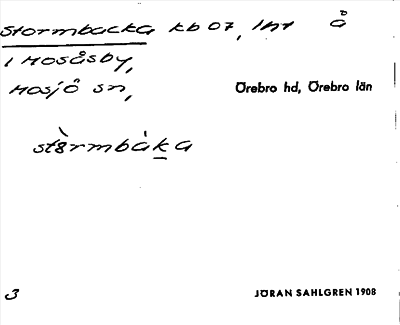 Stormbacka kb 07, Int å
i Mosåsby,
Mosjö sn, Örebro hd, Örebro län
stòrmbàka
3 JÖRAN SAHLGREN 1908